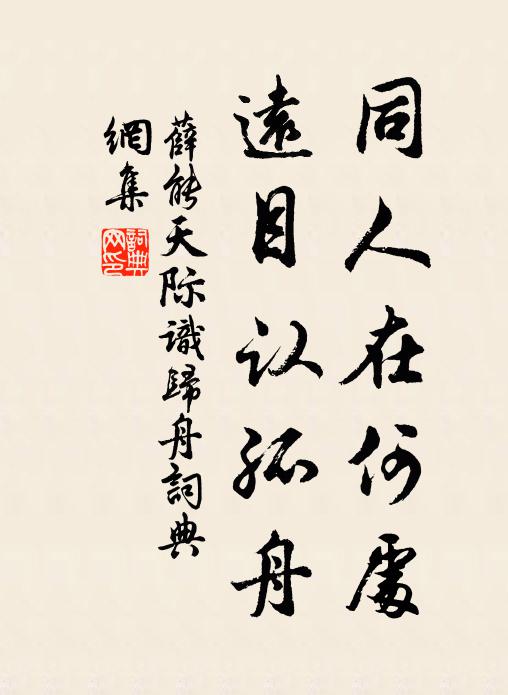 同人在何處
遠目认孤舟
薛能天际識歸舟詞典
網集
詞典網印